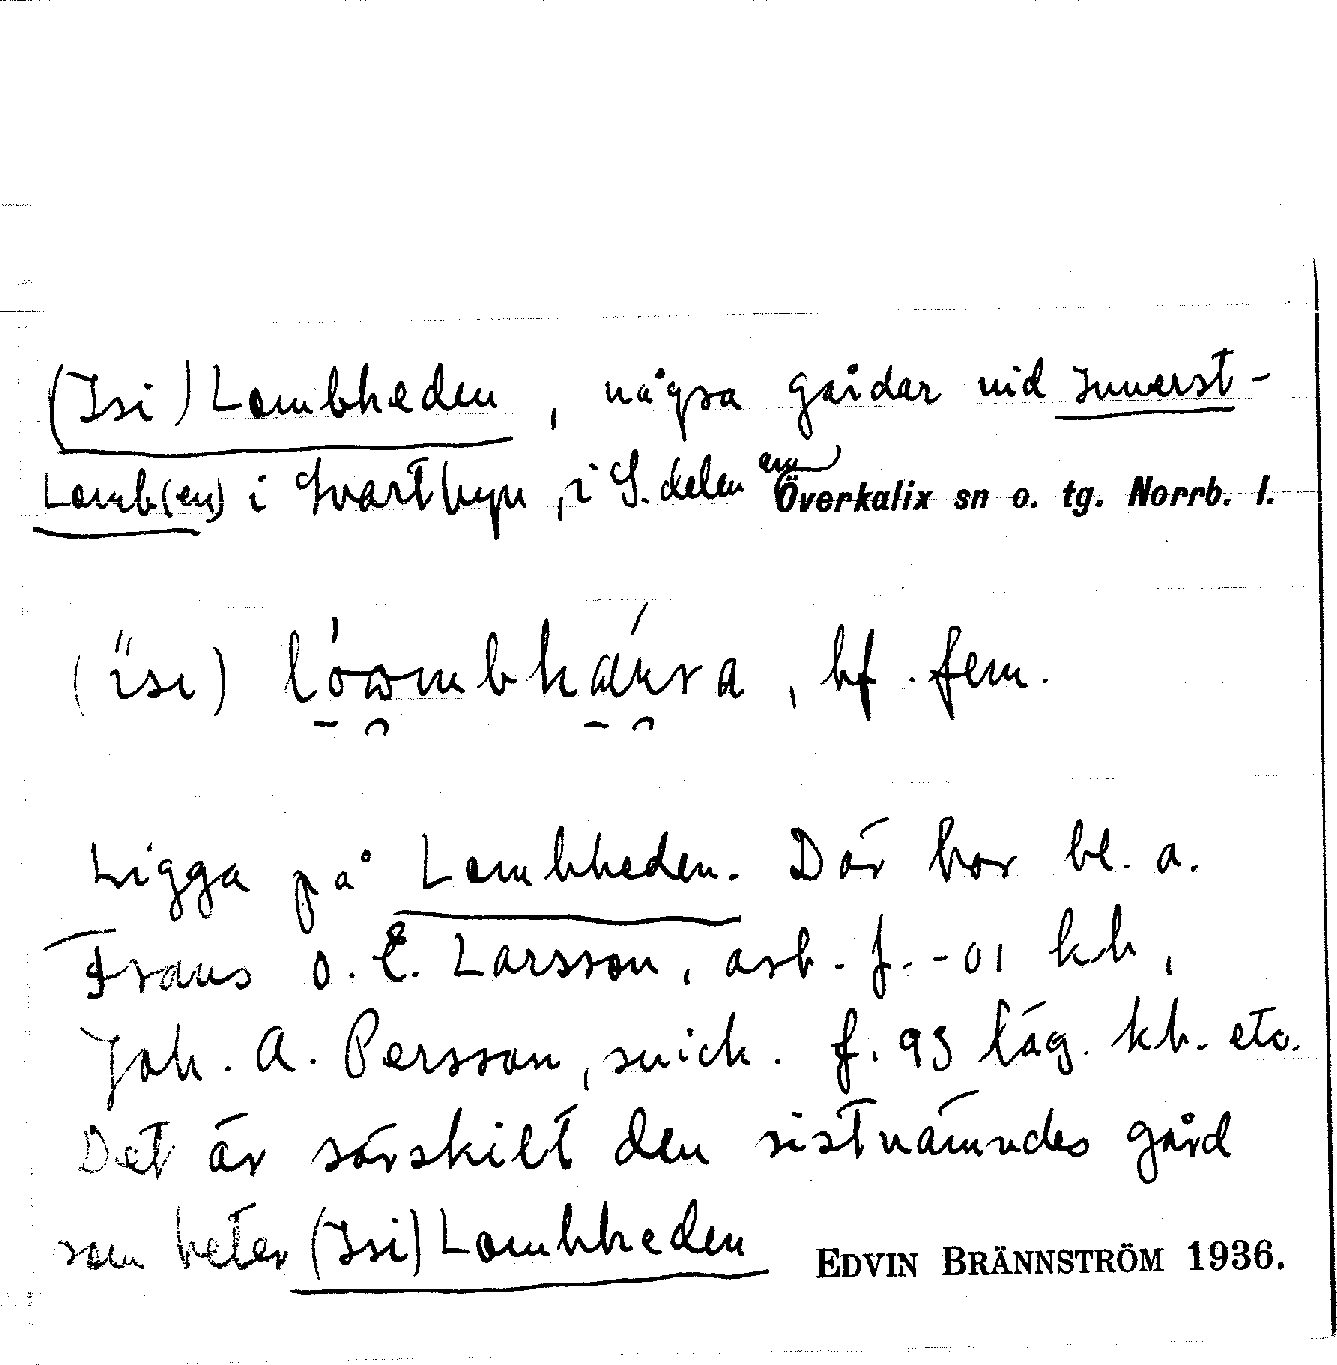 (Isi) Lombheden, några gårdar vid Innerst-
Lomb(en) i Svartbyn, i S. delen av Överkalix sn o. tg. Norrb. l.
lóωmbháura, bf. fem.
Ligga på Lombheden. Där bor bl. a.
Frans O. E. Larsson, arb. f. -01 kb,
Joh. A. Persson, snick. f. 93 läg. kb. etc.
Det är särskilt den sistnämndes gård
som heter (Isi) Lombheden
EDVIN BRÄNNSTRÖM 1936.